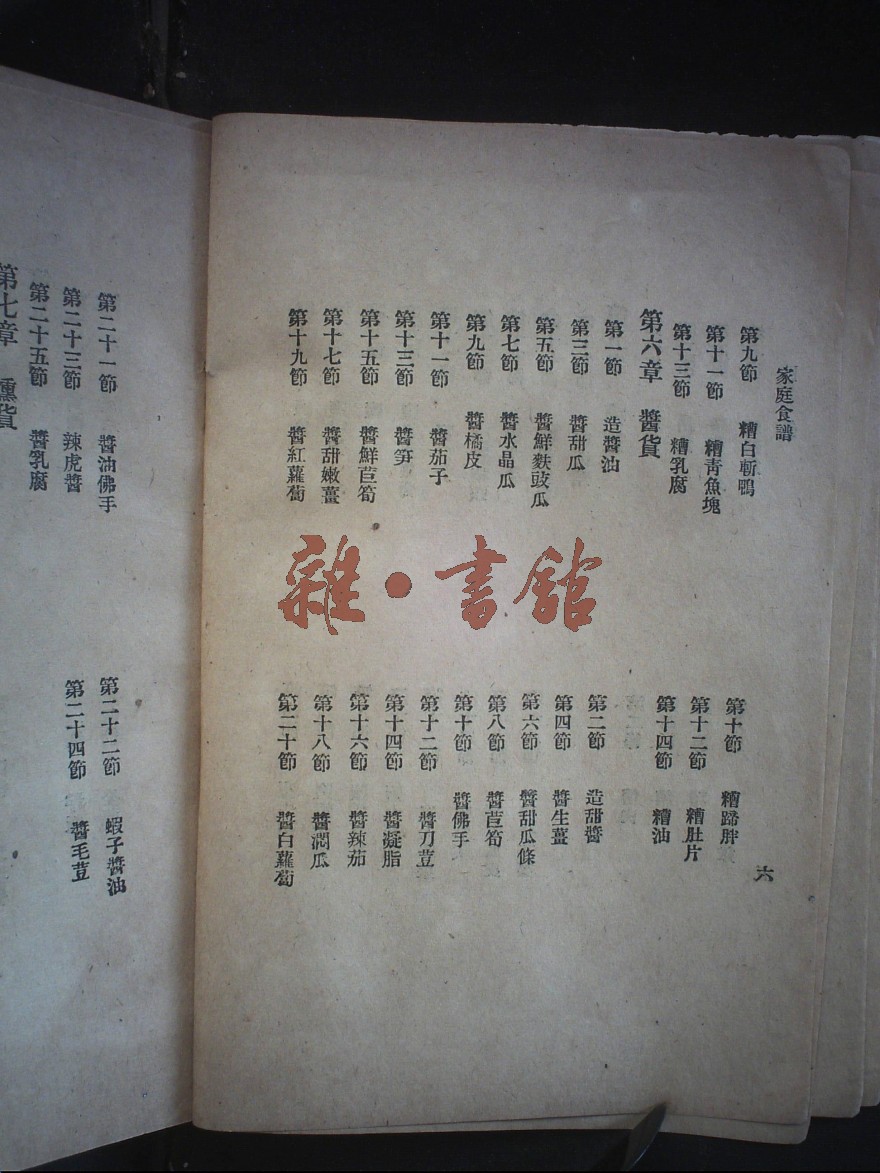 家庭食譜
六
第九節 糟白斬鴨
第十節 糟蹄胖
第十一節 糟青魚塊
第十二節 糟肚片
第十三節 糟乳腐
第十四節 糟油
第六章 醬貨
第一節 造醬油
第二節 造甜醬
第三節 醬甜瓜
第四節 醬生薑
第五節 醬鮮麩豉瓜
第六節 醬甜瓜條
第七節 醬水晶瓜
第八節 醬苣筍
第九節 醬橘皮
第十節 醬佛手
第十一節 醬茄子
第十二節 醬刀荳
第十三節 醬笋
第十四節 醬凝脂
第十五節 醬鮮苣筍
第十六節 醬辣茄
第十七節 醬甜嫩薑
第十八節 醬潤瓜
第十九節 醬紅蘿蔔
第二十節 醬白蘿蔔
第二十一節 醬油佛手
第二十二節 蝦子醬油
第二十三節 辣虎醬
第二十四節 醬毛荳
第二十五節 醬乳腐
第七章 燻貨
雜·書館